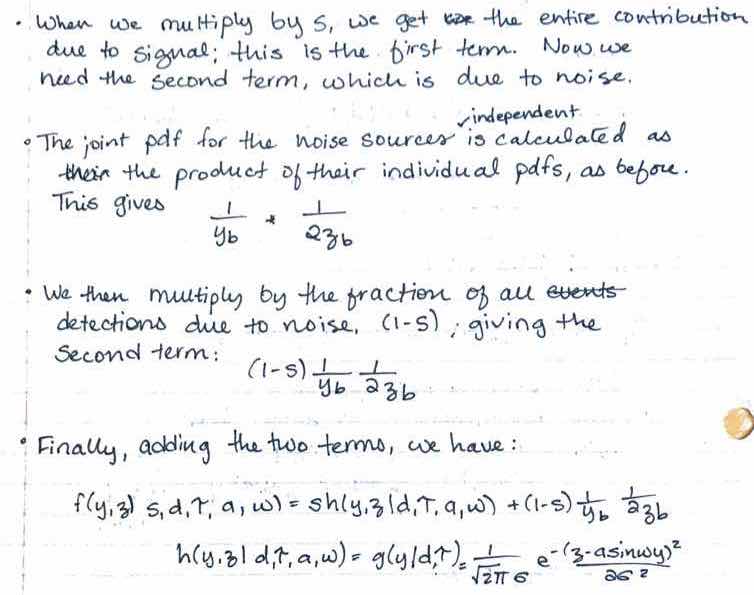 • When we multiply by s, we get the entire contribution
due to signal; this is the first term. Now we
need the second term, which is due to noise.
independent
• The joint pdf for the noise sources is calculated as
their the product of their individual pdfs, as before.
This gives 1/yb * 1/2zb
• We then multiply by the fraction of all events
detections due to noise, (1-s), giving the
second term: (1-s) 1/yb 1/2zb
• Finally, adding the two terms, we have:
f(y,z| s,d,τ, a, w) = sh(y,z|d,τ,a,w) + (1-s) 1/yb 1/2zb
h(y,z| d,τ,a,w) = g(y|d,τ) = 1/√2πσ e -(z-asinwy)²/2σ²